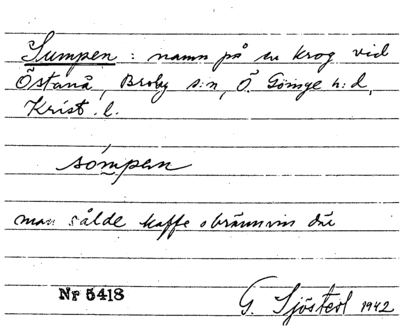 Sumpen : namn på en krog vid
Östanå, Broby s:n, Ö. Göinge h:d,
Krist. l.
sómpen
man sålde kaffe o brännvin där
Nr 5418
G. Sjöstedt 1942